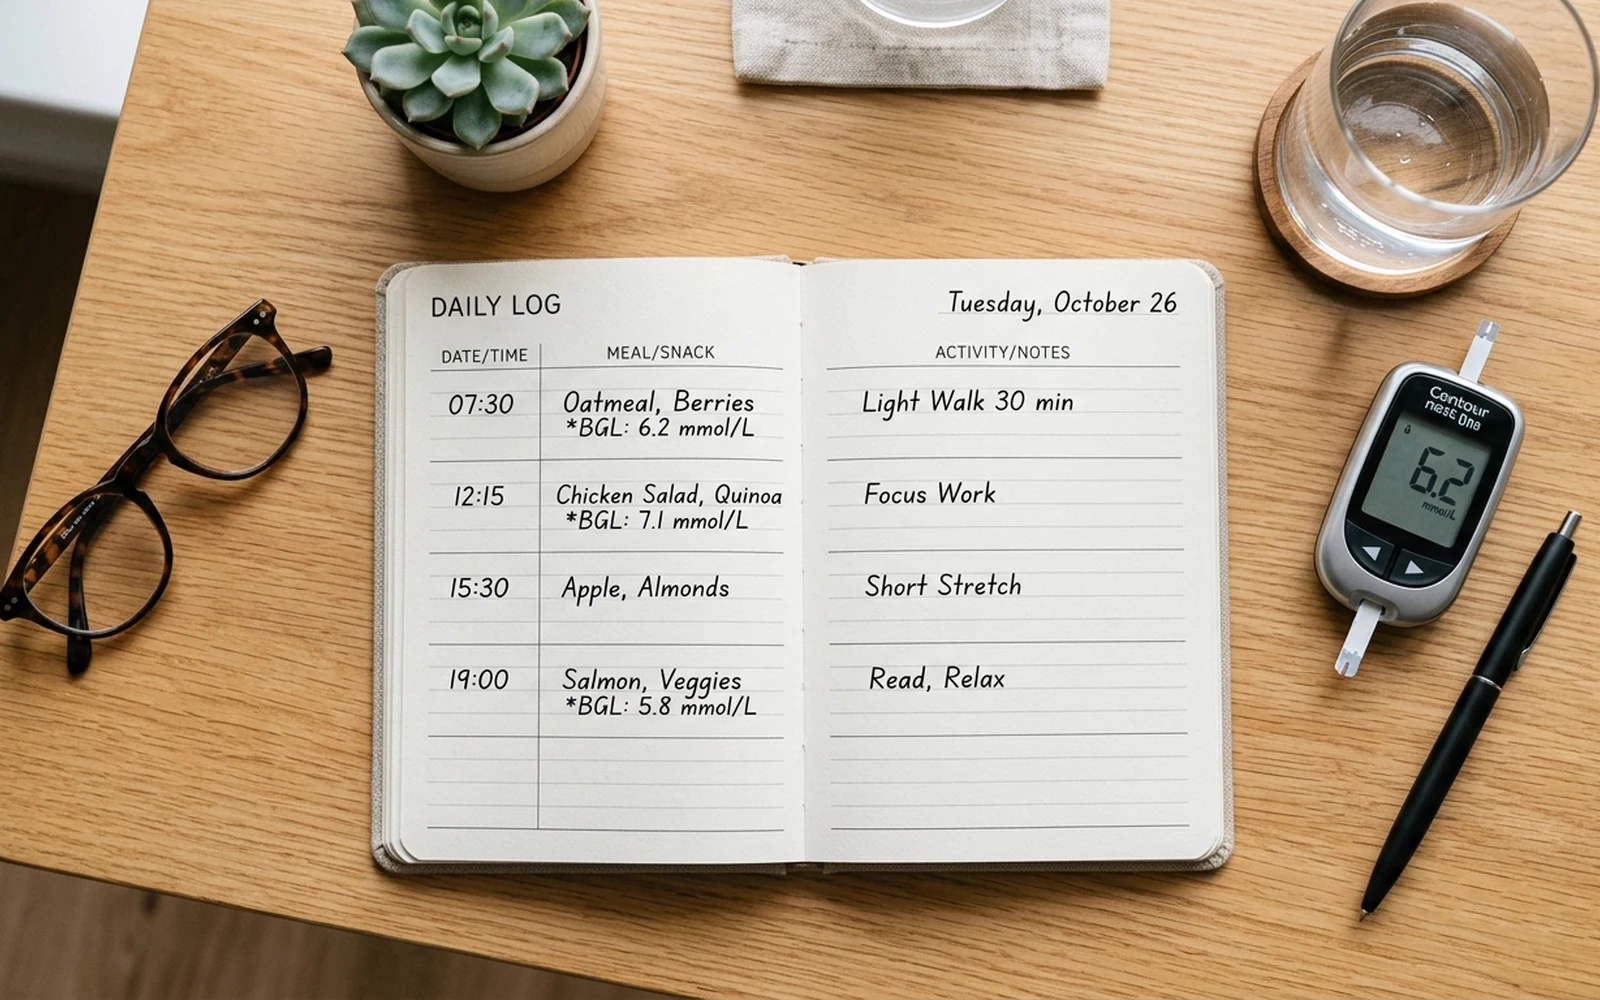 DAILY LOG
Tuesday, October 26
DATE/TIME MEAL/SNACK ACTIVITY/NOTES
07:30 Oatmeal, Berries Light Walk 30 min
*BGL: 6.2 mmol/L
12:15 Chicken Salad, Quinoa Focus Work
*BGL: 7.1 mmol/L
15:30 Apple, Almonds Short Stretch
19:00 Salmon, Veggies Read, Relax
*BGL: 5.8 mmol/L
Contour
One
6.2
mmol/L